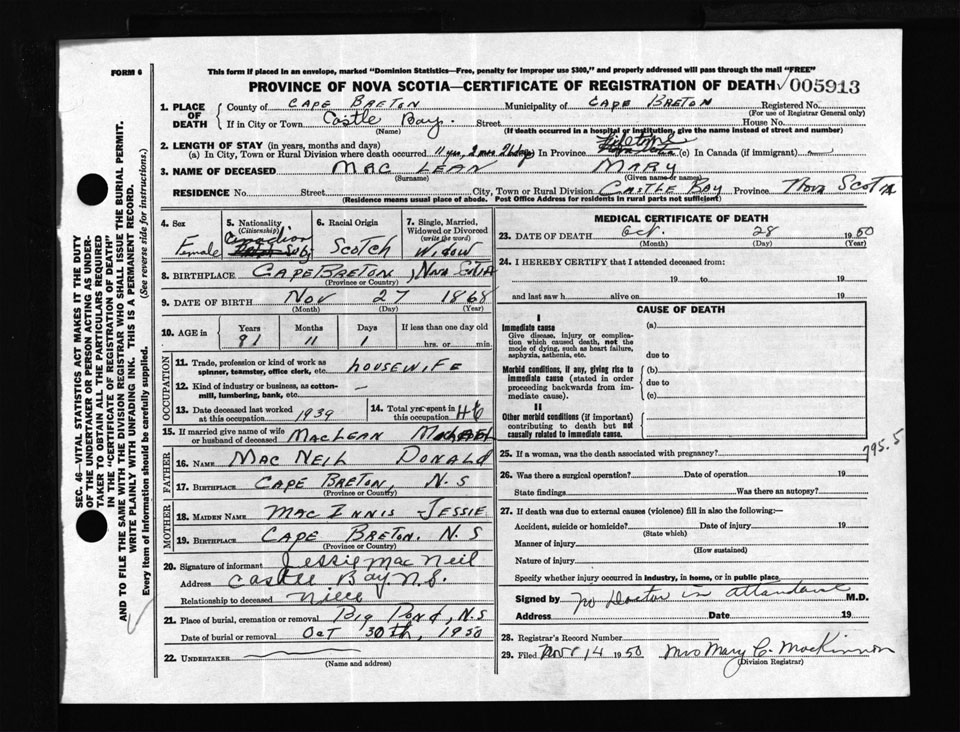 FORM 6
This form if placed in an envelope, marked "Dominion Statistics—Free, penalty for improper use $300," and properly addressed will pass through the mail "FREE"
PROVINCE OF NOVA SCOTIA—CERTIFICATE OF REGISTRATION OF DEATH 005913
1. PLACE OF DEATH County of CAPE BRETON Municipality of CAPE BRETON Registered No.
(For use of Registrar General only)
If in City or Town Castle Bay. Street House No.
(Name) (If death occurred in a hospital or institution, give the name instead of street and number)
2. LENGTH OF STAY (in years, months and days) Lifetime
(a) In City, Town or Rural Division where death occurred 11 yrs, 2 mos 21 days In Province (c) In Canada (if immigrant)
3. NAME OF DECEASED MAC LEAN MARY
(Surname) (Given name or names)
RESIDENCE No. Street City, Town or Rural Division CASTLE BAY Province NOVA SCOTIA
(Residence means usual place of abode. Post Office Address for residents in rural parts not sufficient)
4. Sex Female
5. Nationality (Citizenship) Canadian
6. Racial Origin SCOTCH
7. Single, Married, Widowed or Divorced (write the word) WIDOW
8. BIRTHPLACE CAPE BRETON, NOVA SCOTIA
(Province or Country)
9. DATE OF BIRTH NOV 27 1868
(Month) (Day) (Year)
10. AGE in Years Months Days If less than one day old
81 11 1 hrs. or min.
OCCUPATION
11. Trade, profession or kind of work as spinner, teamster, office clerk, etc. HOUSEWIFE
12. Kind of industry or business, as cotton-mill, lumbering, bank, etc. —
13. Date deceased last worked at this occupation 1939
14. Total yrs. spent in this occupation 46
15. If married give name of wife or husband of deceased MACLEAN
FATHER
16. NAME MAC NEIL DONALD
17. BIRTHPLACE CAPE BRETON, N.S
(Province or Country)
MOTHER
18. MAIDEN NAME MAC INNIS JESSIE
19. BIRTHPLACE CAPE BRETON. N.S
(Province or Country)
20. Signature of informant Jessie Mac Neil
Address Castle Bay N.S.
Relationship to deceased Niece
21. Place of burial, cremation or removal Big Pond, N.S
Date of burial or removal Oct 30th, 1950
22. UNDERTAKER
(Name and address)
MEDICAL CERTIFICATE OF DEATH
23. DATE OF DEATH Oct. 28 1950
(Month) (Day) (Year)
24. I HEREBY CERTIFY that I attended deceased from:
19 to 19
and last saw h alive on 19
CAUSE OF DEATH
I
Immediate cause (a)
Give disease, injury or complication which caused death, not the mode of dying, such as heart failure, asphyxia, asthenia, etc.
due to
Morbid conditions, if any, giving rise to immediate cause (stated in order proceeding backwards from immediate cause). (b)
due to
(c)
II
Other morbid conditions (if important) contributing to death but not causally related to immediate cause.
795.5
25. If a woman, was the death associated with pregnancy?
26. Was there a surgical operation? Date of operation 19
State findings Was there an autopsy?
27. If death was due to external causes (violence) fill in also the following:—
Accident, suicide or homicide? Date of injury 19
(State which)
Manner of injury
(How sustained)
Nature of injury
Specify whether injury occurred in industry, in home, or in public place.
Signed by no Doctor in attendance M.D.
Address Date 19
28. Registrar's Record Number
29. Filed Nov 14 1950 Mrs Mary C. MacKinnon
(Division Registrar)
SEC. 46—VITAL STATISTICS ACT MAKES IT THE DUTY
OF THE UNDERTAKER OR PERSON ACTING AS UNDER-
TAKER TO OBTAIN ALL THE PARTICULARS REQUIRED
IN THE "CERTIFICATE OF REGISTRATION OF DEATH"
AND TO FILE THE SAME WITH THE DIVISION REGISTRAR WHO SHALL ISSUE THE BURIAL PERMIT.
WRITE PLAINLY WITH UNFADING INK. THIS IS A PERMANENT RECORD.
Every item of information should be carefully supplied. (See reverse side for instructions.)